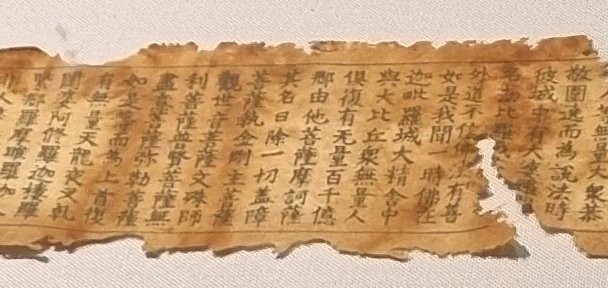 無量大衆恭
敬圍遶而為說法時
彼城中有大
名劫比羅
外道不信佛法有善
如是我聞一時佛在
迦毗羅城大精舍中
與大比丘衆無量人
俱復有无量百千億
那由他菩薩摩訶薩
其名曰除一切盖障
菩薩執金剛主菩薩
觀世音菩薩文殊師
利菩薩普賢菩薩無
盡意菩薩弥勒菩薩
如是等而為上首復
有無量天龍夜叉乹
闥婆阿修羅迦樓羅
緊那羅摩睺羅伽人
非人